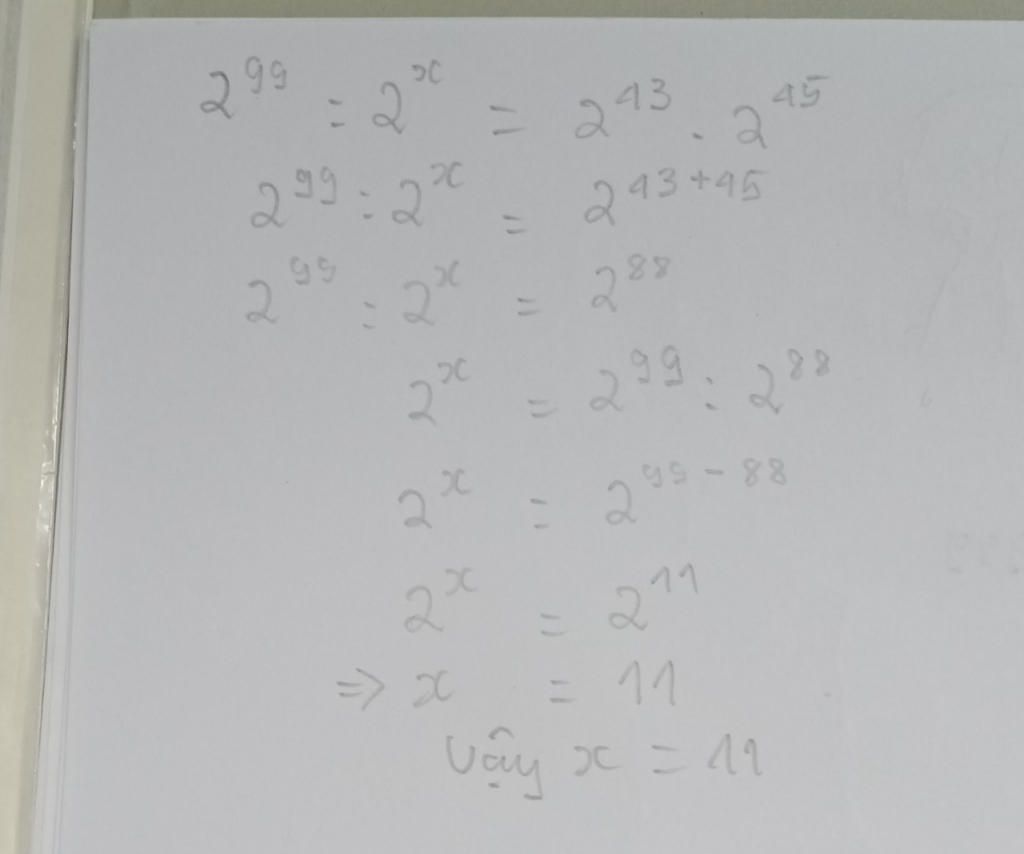 2^99 : 2^x = 2^43 . 2^45
2^99 : 2^x = 2^43+45
2^99 : 2^x = 2^88
2^x = 2^99 : 2^88
2^x = 2^99-88
2^x = 2^11
⇒ x = 11
Vậy x = 11